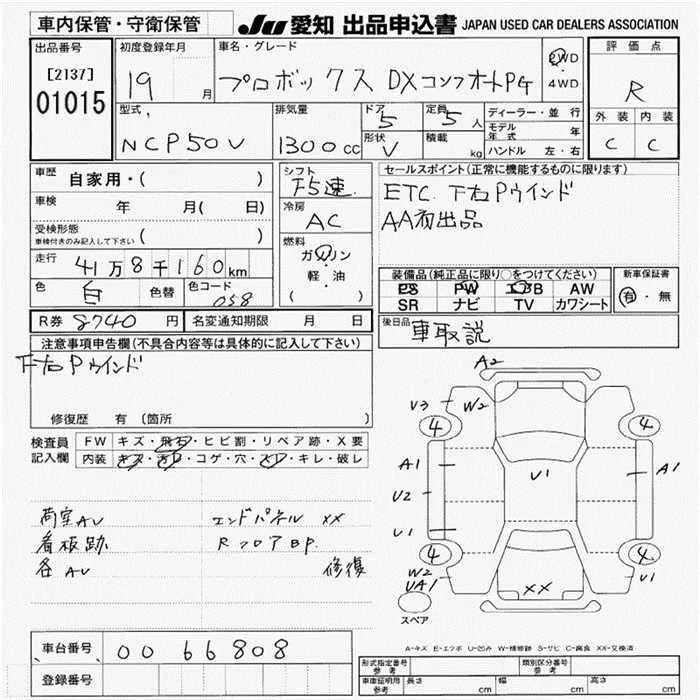 車内保管・守衛保管
JU 愛知 出品申込書 JAPAN USED CAR DEALERS ASSOCIATION
出品番号 初度登録年月 車名・グレード 評価点
[2137]
01015
19 月 プロボックス DXコンフォートPG 2WD
4WD
R
型式 排気量 ドア 5 定員 5 人 ディーラー・並行 外装 内装
NCP50V 1300cc 形状 V 積載 kg モデル年式 年
ハンドル 左・右 C C
車歴 自家用・( ) シフト F5速 セールスポイント(正常に機能するものに限ります)
車検 年 月( 日) 冷房 AC ETC. 下右Pウインド
AA初出品
受検形態
車検付きのみ記入して下さい ( )
燃料 ガソリン
軽・油
( )
走行 41万8千160km
色 白 色替 色コード 058
装備品(純正品に限り○をつけてください) 新車保証書
PS PW エアB AW 有・無
SR ナビ TV カワシート
R券 8740 円 名変通知期限 月 日 後日品 車取説
注意事項申告欄(不具合内容等は具体的に記入して下さい)
下右Pウインド
修復歴 有 (箇所
検査員 FW キズ・飛石・ヒビ割・リペア跡・X要
記入欄 内装 キズ・汚レ・コゲ・穴・スレ・キレ・破レ
荷室AU エンドパネル XX
看板跡 RフロアBP.
各AU 修復
A2
V3 W2
4 4
A1 U1 A1
U2
U1
4 4
W2
UA1 XX U1
スペア
A-キズ E-エクボ U-凹み W-補修跡 S-サビ C-腐食 XX-交換済
車台番号 0066808
登録番号
形式指定番号 参考 類別区分番号 参考
車庫証明用 参考 長さ cm 幅 cm 高さ cm